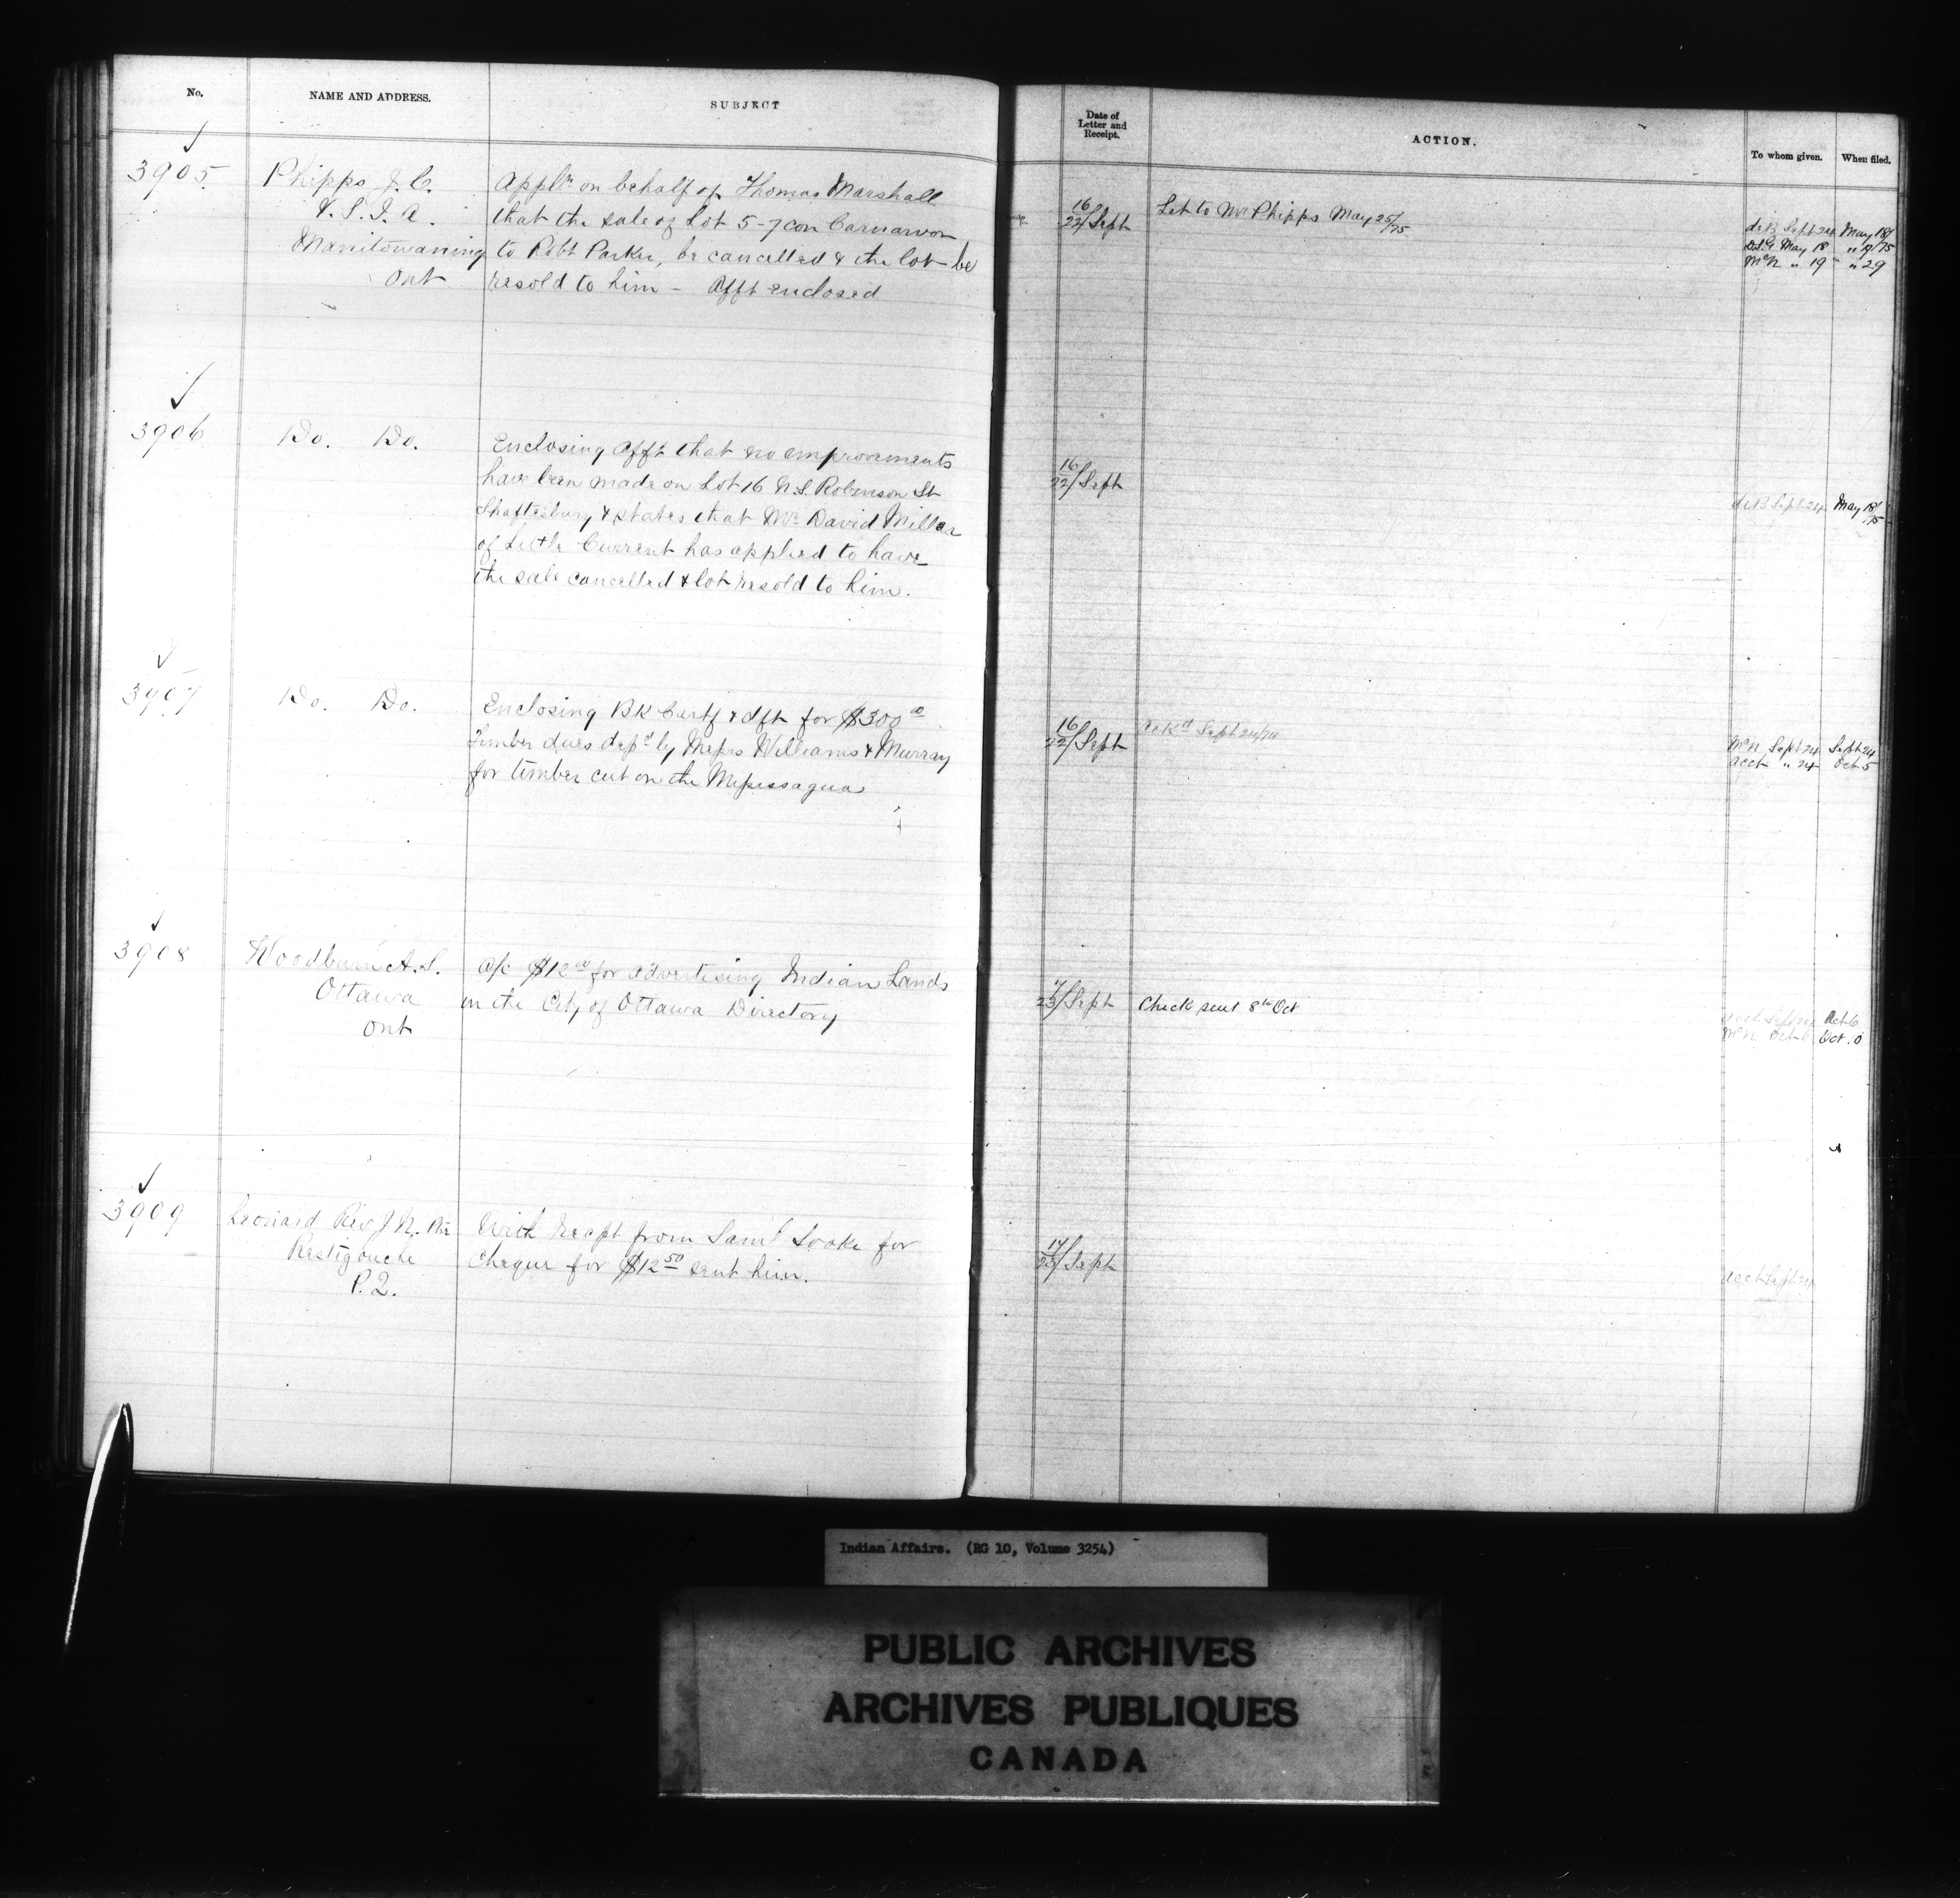 No.
NAME AND ADDRESS.
SUBJECT
Date of
Letter and
Receipt.
ACTION.
To whom given.
When filed.
3905.
Phipps J. C.
V. S. I. A.
Manitowaning
Ont
Applⁿ on behalf of Thomas Marshall
that the sale of Lot 5-7 con Carnarvon
to Robt Parker, be cancelled & the lot be
resold to him - Afft enclosed
16
22/Sept
Let to Mr Phipps May 25/75
deB Sept 24 May 18/75
May 18 " 19/75
McN " 19 " 29
3906
Do. Do.
Enclosing Afft that no improvements
have been made on Lot 16 N.S. Robinson St
Shaftesbury & states that Mr David Millar
of Little Current has applied to have
the sale cancelled & lot resold to him.
16
22/Sept
deB Sept 24 May 18/75
3907
Do. Do.
Enclosing Bk Certf & dft for $300 00
Timber dues depd by Messrs Williams & Murray
for timber cut on the Mississagua
16
22/Sept
ackd Sept 24/74
McN Sept 24 Sept 24
Acct " 24 Oct 5
3908
Woodburn A. S.
Ottawa
Ont
a/c $12 00 for advertising Indian Lands
in the City of Ottawa Directory
23/Sept
Check sent 8th Oct
acct Sept 24 Oct 6
McN Oct 6 Oct.
3909
Leonard Rev J. N.
Restigouche
P.Q.
With recpt from Saml Sooke for
cheque for $12 50 sent him.
17
23/Sept
acct Sept 24
Indian Affairs. (RG 10, Volume 3254)
PUBLIC ARCHIVES
ARCHIVES PUBLIQUES
CANADA